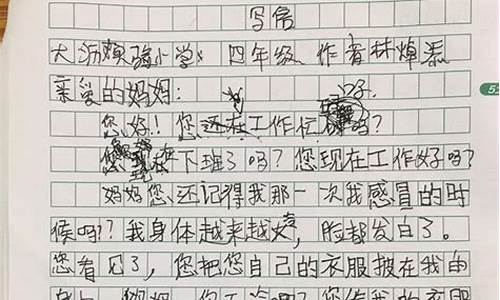 写信
大沥实验小学 四年级 作者林焯
亲爱的妈妈：
您好!！您还在工作忙吗？
您现在下班了吗？您现在工作好吗？
妈妈您还记得我那一次我感冒的时
候吗？我身体越来越，脸都发白了。
您看见了，您把您自己的衣服披在我的
身上，妈妈，您不冷吗？您给我的衣服